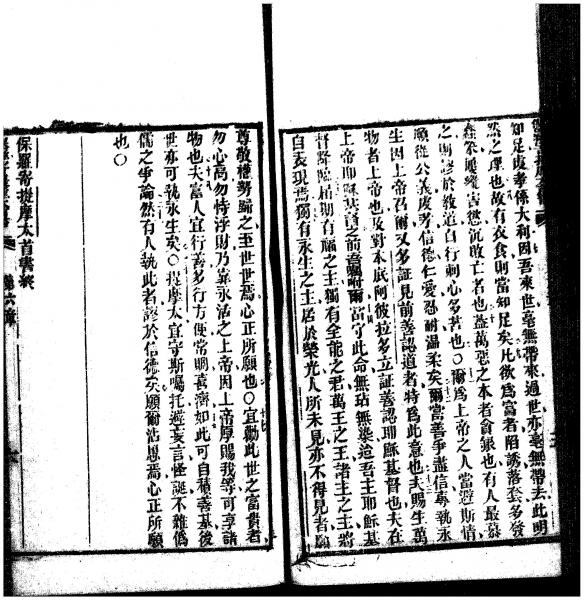 知足虔孝係大利因吾來世毫無帶來過世亦毫無帶去此明
然之理也故有衣食則當知足矣凡欲爲富者陷誘落套多發
害慾沉敗亡者也蓋萬惡之本者貪銀也有人最慕
之則謬於教道自行刺心多者也〇爾爲上帝之人當避斯情
從公義虔孝信德仁愛忍耐溫柔矣爾當善爭盡信專執永
生因上帝召爾又多証見前善認道者特爲此意也夫賜生萬
物者上帝也及對本底阿彼拉多立証善認耶穌基督也夫在
上帝耶穌基督之前吾囑咐爾當守此命無玷無染迨吾主耶穌基
督降臨屆期有福之主獨有全能之君萬王之王諸主之主將
白表現焉獨有永生之主居於榮光人所未見亦不得見者願
尊敬權勢歸之至世世焉心正所願也〇宜勸此世之富貴者
勿心高勿恃浮財乃靠永活之上帝因上帝厚賜我等可享諸
物也夫富人宜行善多行方便常賙喜濟如此可自積善基後
世亦可執永生矣〇提摩太宜守斯囑托避妄言怪誕不雜僞
儒之爭論然有人執此者謬於信德矣願爾沾恩焉心正所願
也〇
保羅寄提摩太首書終
第六章